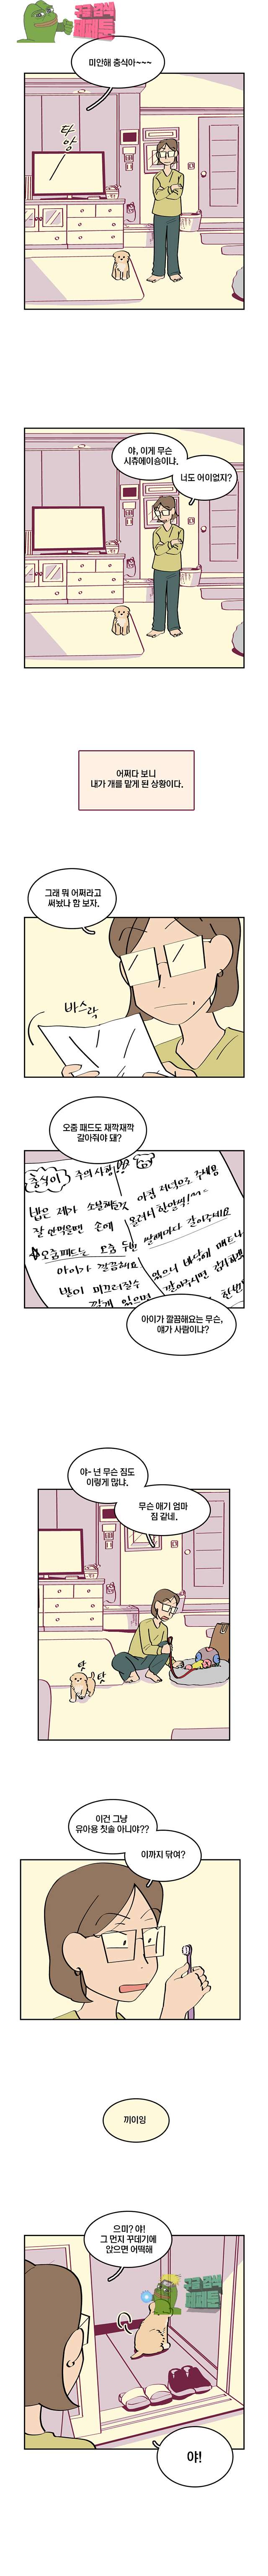 구글 검색
펩페툰
미안해 충식아~~~
타
앙
야, 이게 무슨
시츄에이숑이냐.
너도 어이없지?
어쩌다 보니
내가 개를 맡게 된 상황이다.
그래 뭐 어쩌라고
써놨나 함 보자.
바스락
오줌 패드도 재깍재깍
갈아줘야 돼?
충식이 주의사항!!
밥은 제가 소분해놓은것 아침 저녁으로 주세요
잘 안먹을땐 손에
☆오줌패드는 오줌 두번
아이가 깔끔해요
발이 미끄러질수
아이가 깔끔해요는 무슨,
얘가 사람이냐?
야~ 넌 무슨 짐도
이렇게 많냐.
무슨 애기 엄마
짐 같네.
탓
탓
이건 그냥
유아용 칫솔 아니야??
이까지 닦여?
끼이잉
으미? 야!
그 먼지 꾸데기에
앉으면 어떡해
야!